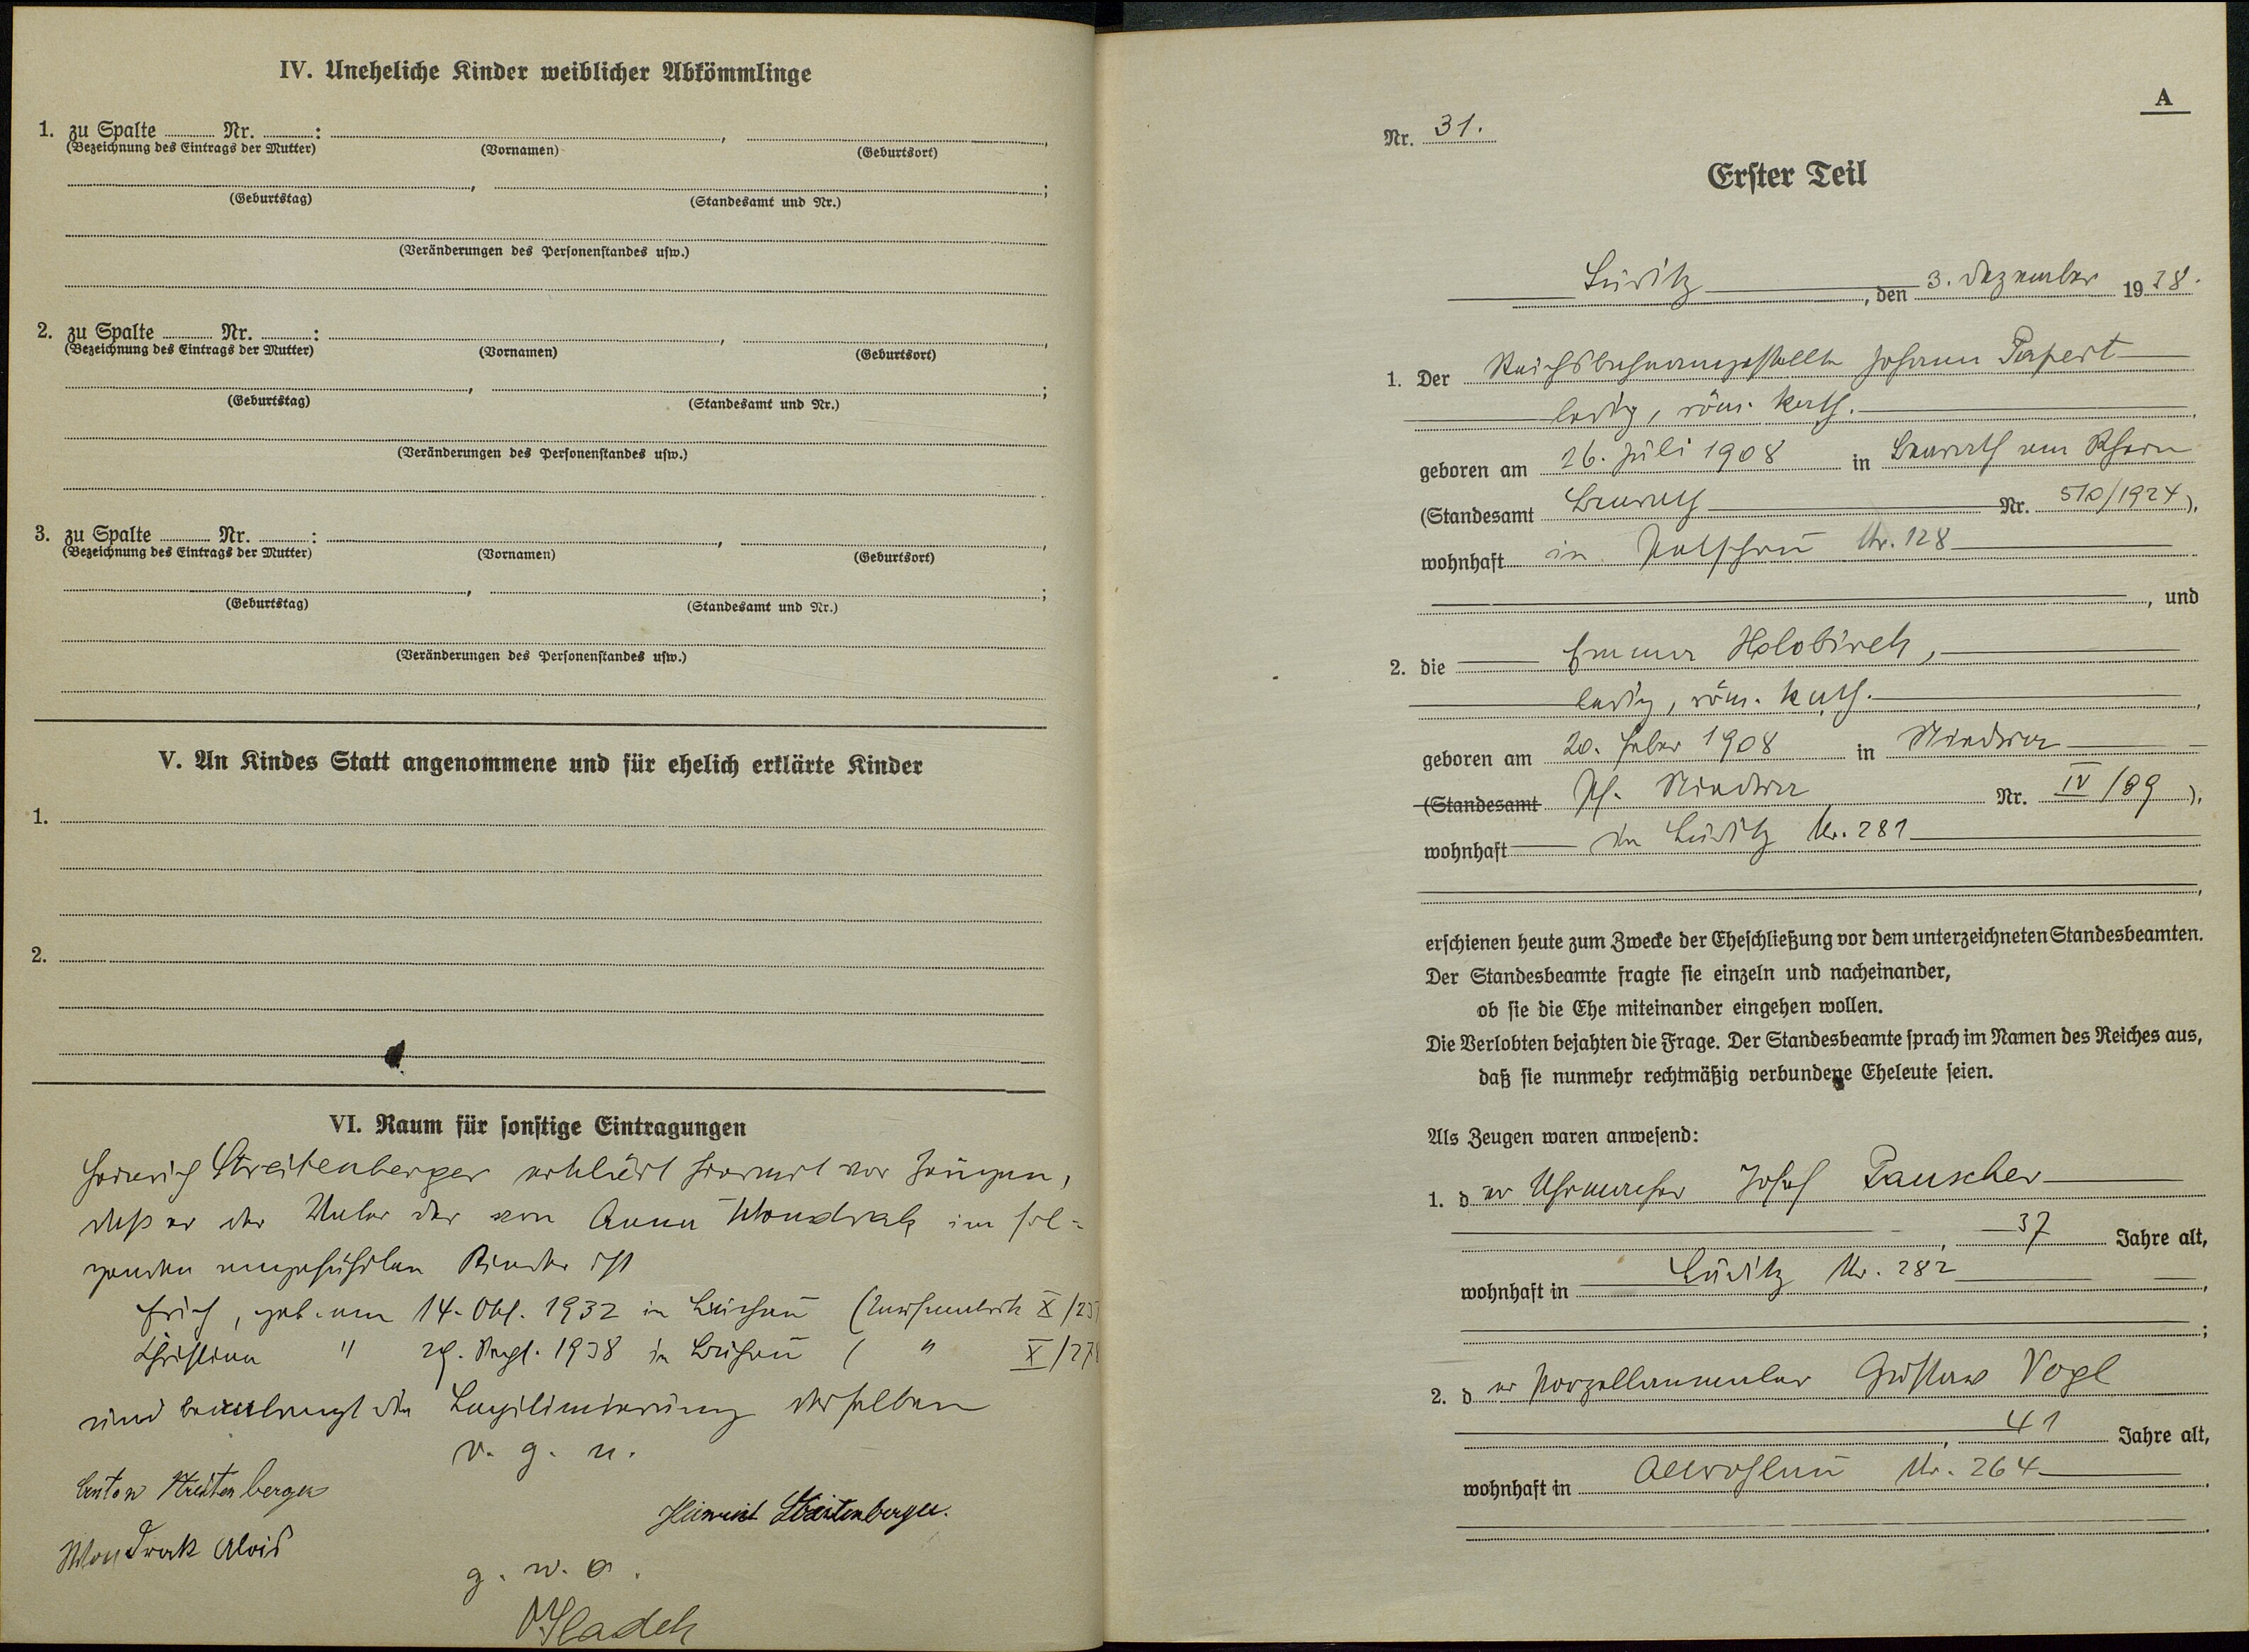 IV. Uneheliche Kinder weiblicher Abkömmlinge
1. zu Spalte Nr. :
(Bezeichnung des Eintrags der Mutter) (Vornamen) (Geburtsort)
(Geburtstag) (Standesamt und Nr.)
(Veränderungen des Personenstandes usw.)
2. zu Spalte Nr. :
(Bezeichnung des Eintrags der Mutter) (Vornamen) (Geburtsort)
(Geburtstag) (Standesamt und Nr.)
(Veränderungen des Personenstandes usw.)
3. zu Spalte Nr. :
(Bezeichnung des Eintrags der Mutter) (Vornamen) (Geburtsort)
(Geburtstag) (Standesamt und Nr.)
(Veränderungen des Personenstandes usw.)
V. An Kindes Statt angenommene und für ehelich erklärte Kinder
1.
2.
VI. Raum für sonstige Eintragungen
Heinrich Streitenberger erklärt hiermit vor Zeugen,
daß er der Vater der von Anna Wondrak im fol-
genden angeführten Kinder ist
Erich, geb. am 14. Okt. 1932 in Luchau ( X/237
Christina " 29. Sept. 1938 in Luchau ( " X/278
und beantragt die Legitimierung derselben
v. g. u.
Anton Streitenberger
Heinrich Streitenberger.
Wondrak Alois
g. w. o.
Hladek
A
Nr. 31.
Erster Teil
Luditz, den 3. Dezember 1938.
1. Der Reichsbahnangestellte Johann Papert
ledig, röm. kath.
geboren am 26. Juli 1908 in Benrath am Rhein
(Standesamt Benrath Nr. 510/1924),
wohnhaft in Nr. 128
, und
2. die Emma Holobirek,
ledig, röm. kath.
geboren am 20. Feber 1908 in
(Standesamt Pf. Nr. IV/89),
wohnhaft in Luditz Nr. 281
erschienen heute zum Zwecke der Eheschließung vor dem unterzeichneten Standesbeamten.
Der Standesbeamte fragte sie einzeln und nacheinander,
ob sie die Ehe miteinander eingehen wollen.
Die Verlobten bejahten die Frage. Der Standesbeamte sprach im Namen des Reiches aus,
daß sie nunmehr rechtmäßig verbundene Eheleute seien.
Als Zeugen waren anwesend:
1. der Uhrmacher Josef Tauscher
37 Jahre alt,
wohnhaft in Luditz Nr. 282
2. der Porzellanmaler Gustav Vogl
41 Jahre alt,
wohnhaft in Altrohlau Nr. 264